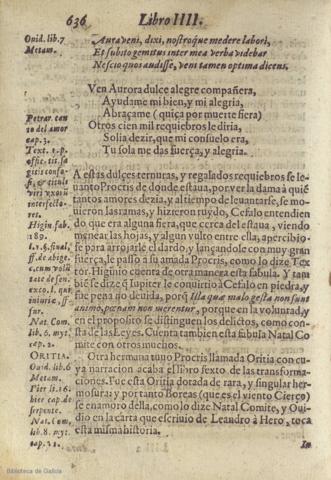 636 Libro IIII.
Ouid. lib. 7 Aura veni, dixi, nostroque medere labori,
Metam. Et subito gemitus inter mea verba videbar
Nescio quos audisse, veni tamen optima dicens.
Ven Aurora dulce alegre compañera,
Ayudame mi bien, y mi alegria,
Abraçame (quiça por muerte fiera)
Otros cien mil requiebros le diria,
Solia dezir, que mi consuelo era,
Tu sola me das fuerça, y alegria.
Petrar. can
zo del amor
cap. 3.
Text. 2. p.
offic. tit. sa
gitis confo-
si, & titulo
viri vxorũ
interfecto-
res.
Higin. fab.
189.
l. 1. §. final,
ff. de abige.
c. cum volũ
tate de sen.
exco. l. que
iniuriæ, ff.
fur.
Nat. Com.
lib. 6. myt.
cap. 2.
ORITIA.
Ouid. lib. 6
Metam.
Pier. li. 16.
hier cap. de
serpente.
Nat. Com.
lib. 8. myt.
cap. 11.
A estas dulces ternuras, y regalados requiebros se le-
uanto Procris de donde estaua, por ver la dama à quiẽ
tantos amores dezia, y al tiempo de leuantarse, se mo
uieron las ramas, y hizieron ruydo, Cefalo entendien
do que era alguna fiera, que cerca del estaua, viendo
menear las hojas, y algun vulto entre ella, apercibio-
se para arrojarle el dardo, y lançandole con muy gran
fuerça, le passò a su amada Procris, como lo dize Tex
tor. Higinio cuenta de otra manera esta fabula. Y tam
biẽ se dize q̃ Iupiter le conuirtiò a Cefalo en piedra, y
fue pena no deuida, porq̃ Illa quæ malo gesta non sunt
animo, pœnam non merentur, porque en la voluntad, y
en el proposito se distinguen los delictos, como con-
sta de las Leyes. Cuenta tambien esta fabula Natal Co
mite con otros muchos.
Otra hermana tuuo Procris llamada Oritia con cu-
ya narracion acaba el libro sexto de las transforma-
ciones. Fue esta Oritia dotada de rara, y singular her-
mosura: y por tanto Boreas (que es el viento Cierço)
se enamorò della, como lo dize Natal Comite, y Oui-
dio en la carta que escriuio de Leandro à Hero, toca
esta misma historia.
In
Biblioteca de Galicia